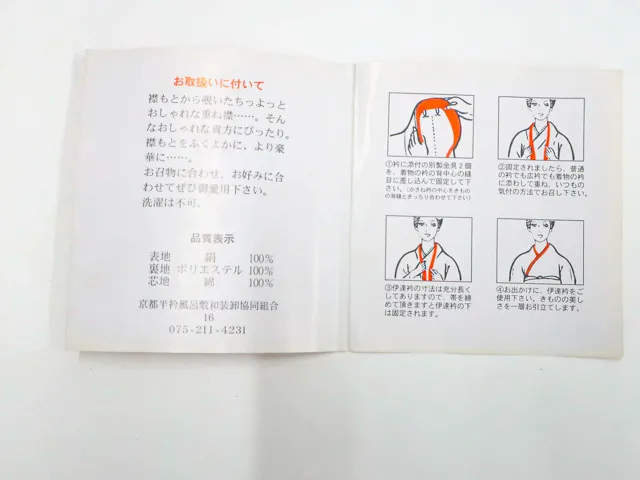 お取扱いに付いて
襟もとから覗いたちょっと
おしゃれな重ね襟……。そん
なおしゃれな貴方にぴったり。
襟もとをふくよかに、より豪
華に……。
お召物に合わせ、お好みに合
わせてぜひ御愛用下さい。
洗濯は不可。
品質表示
表地 絹 100%
裏地 ポリエステル 100%
芯地 綿 100%
京都半衿風呂敷和装卸協同組合
16
075-211-4231
①衿に添付の別製金具2個
を、着物の衿の背中心の縫
目に差し込んで固定して下
さい。(かさね衿の中心をきもの
の背縫とぎっちり合わせて下さい)
②固定されましたら、普通
の衿でも広衿でも着物の衿
に添わして重ね、いつもの
気付の方法でお召し下さい。
③伊達衿の寸法は充分長く
してありますので、帯を締
めて頂きますと伊達衿の下
は固定されます。
④お出かけに、伊達衿をご
使用下さい。きものの美し
さを一層お引立てします。